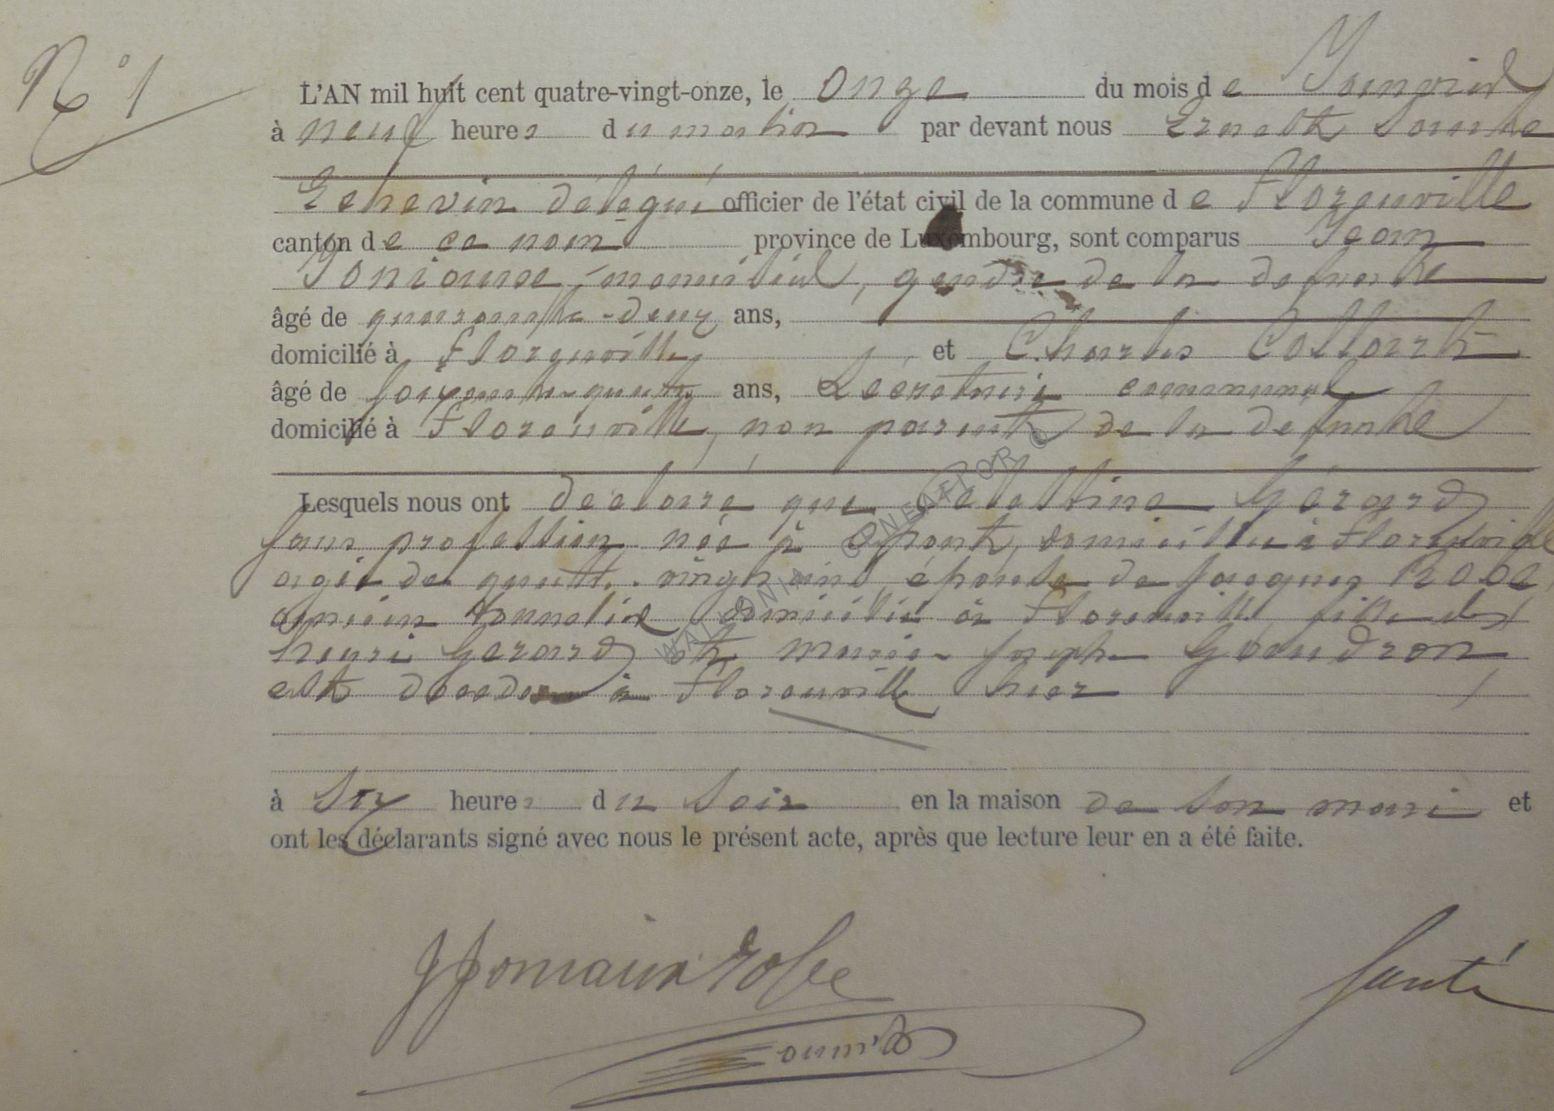 N° 1
L'AN mil huit cent quatre-vingt-onze, le onze du mois de Janvier
à neuf heures du matin par devant nous Ernest
Echevin délégué officier de l'état civil de la commune de Florenville
canton de ce nom province de Luxembourg, sont comparus Jean
menuisier, gendre de la defunte
âgé de quarante-deux ans,
domicilié à Florenville et Charles Collart
âgé de soixante-quatre ans, Secrétaire communal
domicilié à Florenville, non parent de la defunte
Lesquels nous ont déclaré que Celestine Gérard
sans profession née à domiciliée à Florenville
agée de quatre-vingt ans, épouse de Jacques
ancien tonnelier domicilié à Florenville fille de
Henri Gerard et Marie-Joseph
est décédée à Florenville hier
à six heures du soir en la maison de son mari et
ont les déclarants signé avec nous le présent acte, après que lecture leur en a été faite.